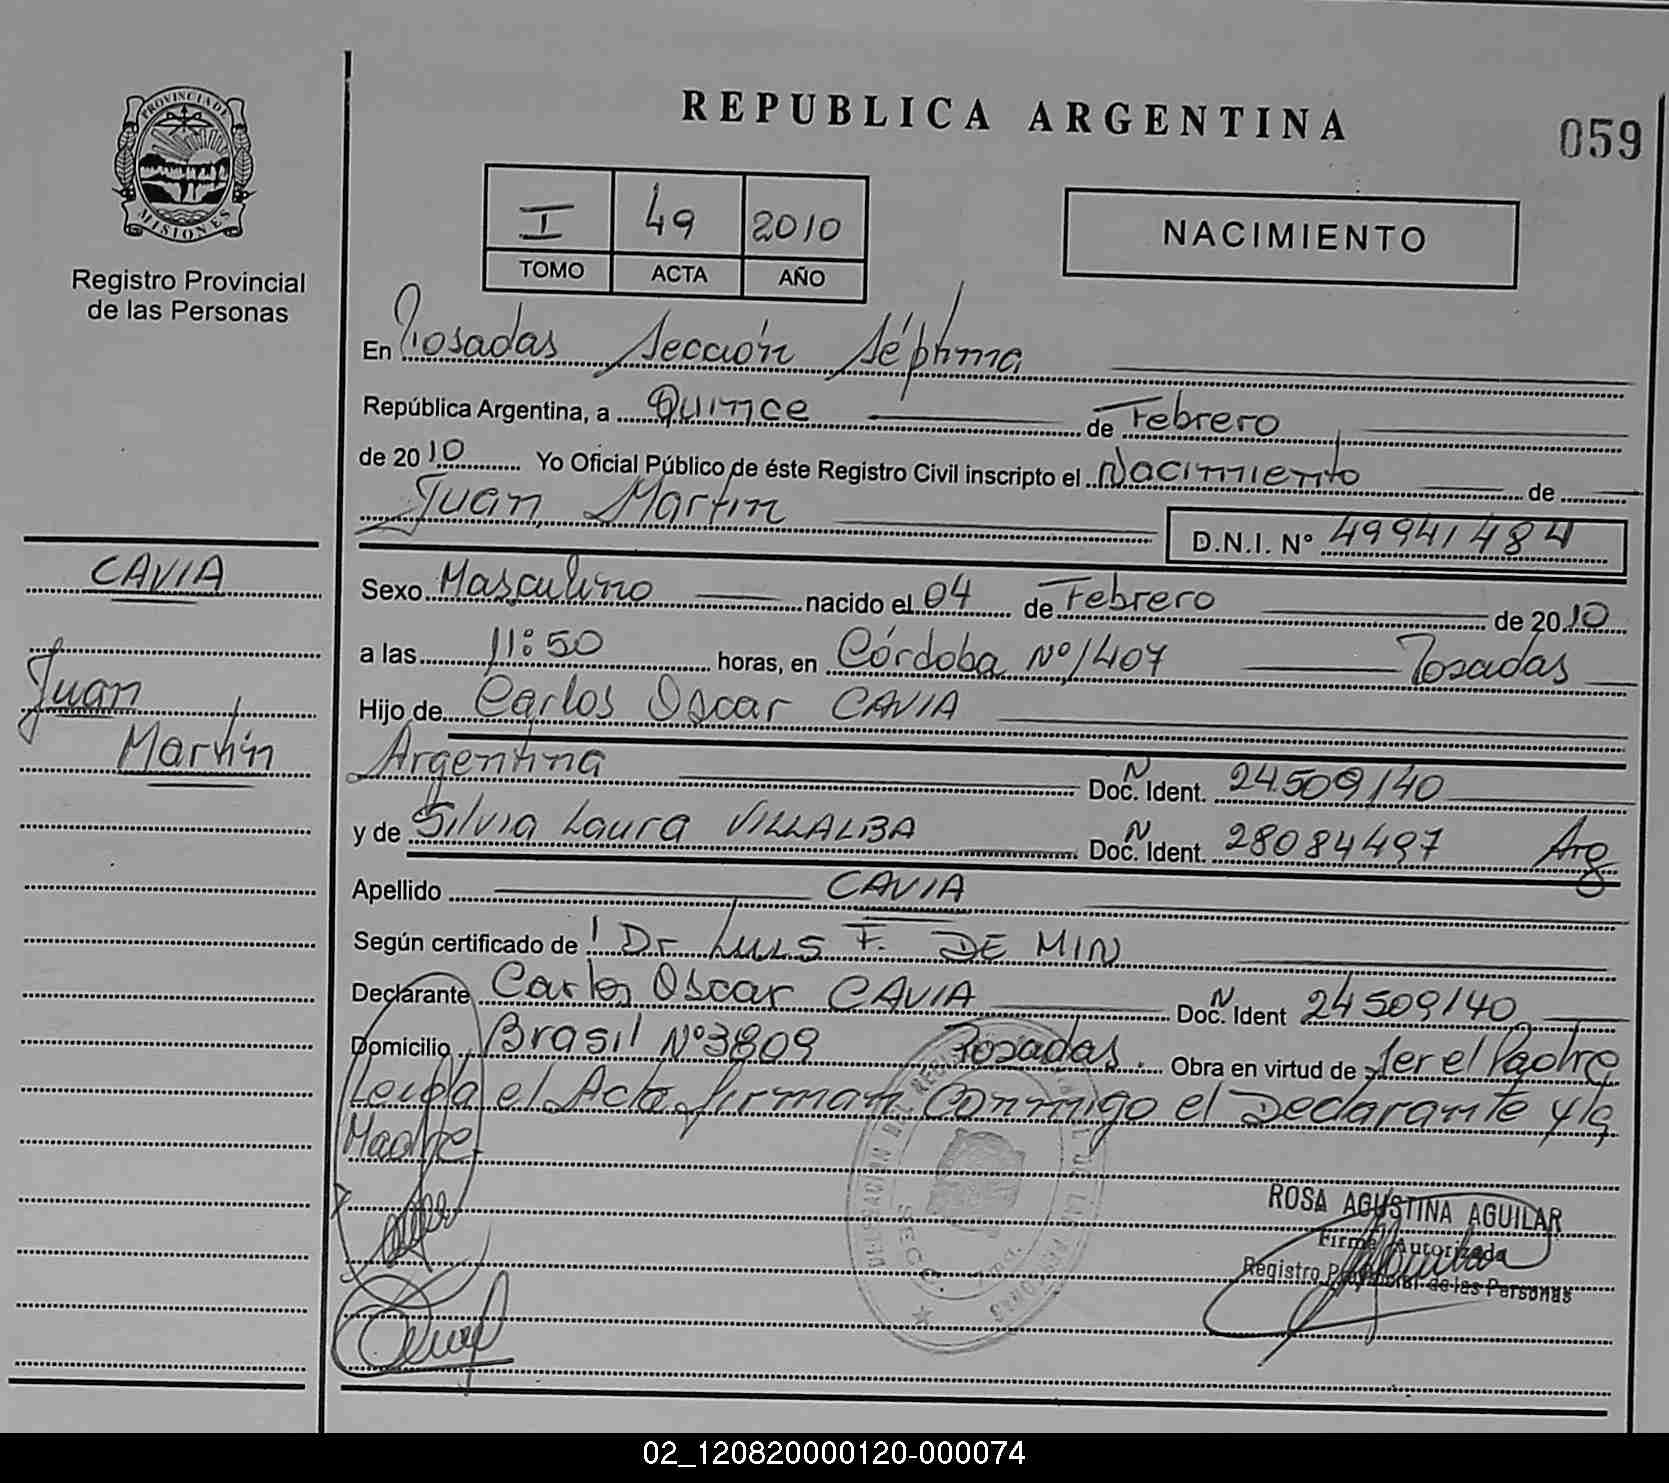 PROVINCIA DE
MISIONES
Registro Provincial
de las Personas
REPUBLICA ARGENTINA
059
I 49 2010
TOMO ACTA AÑO
NACIMIENTO
En Posadas Sección Séptima
República Argentina, a Quince de Febrero
de 2010 Yo Oficial Público de éste Registro Civil inscripto el Nacimiento de
Juan Martín
D.N.I. Nº 49941484
CAVIA
Juan
Martín
Sexo Masculino nacido el 04 de Febrero de 2010
a las 11:50 horas, en Córdoba Nº 1407 Posadas
Hijo de Carlos Oscar CAVIA
Argentina Doc. N Ident. 24509140
y de Silvia Laura VILLALBA Doc. N Ident. 28084497 Arg
Apellido CAVIA
Según certificado de Dr Luis F. DE MIN
Declarante Carlos Oscar CAVIA Doc. N Ident 24509140
Domicilio Brasil Nº 3809 Posadas. Obra en virtud de Ser el Padre
Leida el Acta firman conmigo el Declarante y la
Madre
ROSA AGUSTINA AGUILAR
Firma Autorizada
Registro Provincial de las Personas
02_120820000120-000074